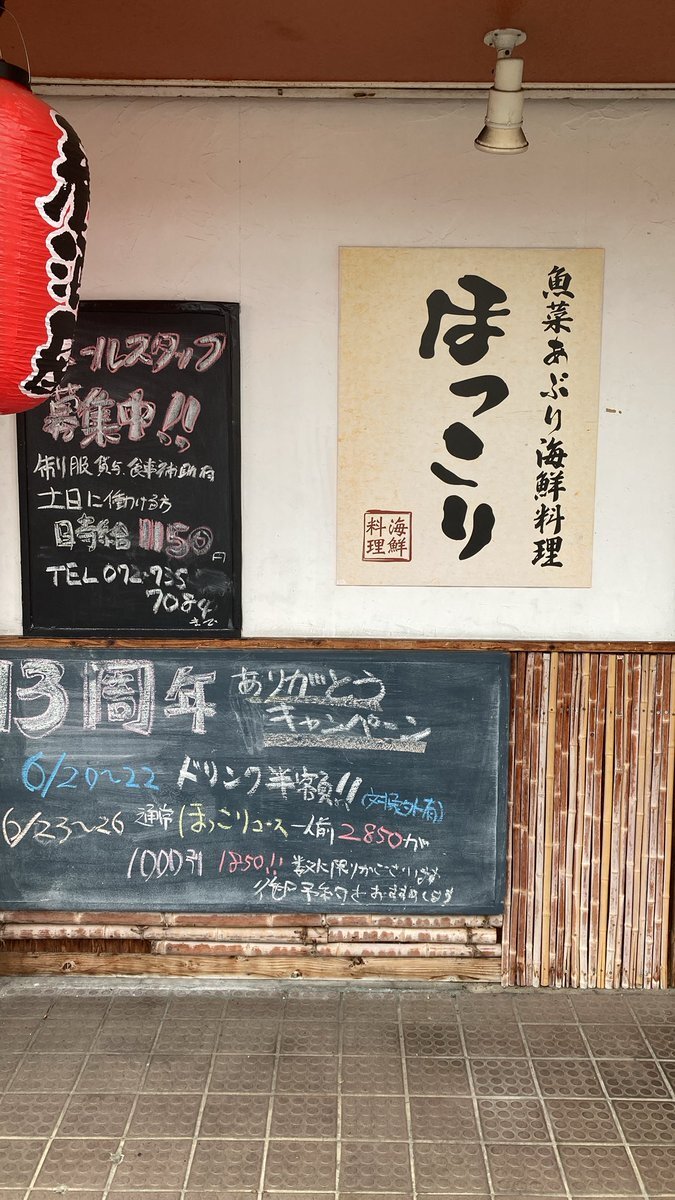 魚菜あぶり海鮮料理
ほっこり
海鮮
料理
ホールスタッフ
募集中!!
制服貸与、食事補助有
土日に働ける方
時給1150円
TEL 072-735
7084
まで
13周年 ありがとう
キャンペーン
6/20〜22 ドリンク半額!! (対象外有)
6/23〜26 通常ほっこりコース一人前2850が
1000引 1850!! 数に限りがございます
御予約をおすすめします